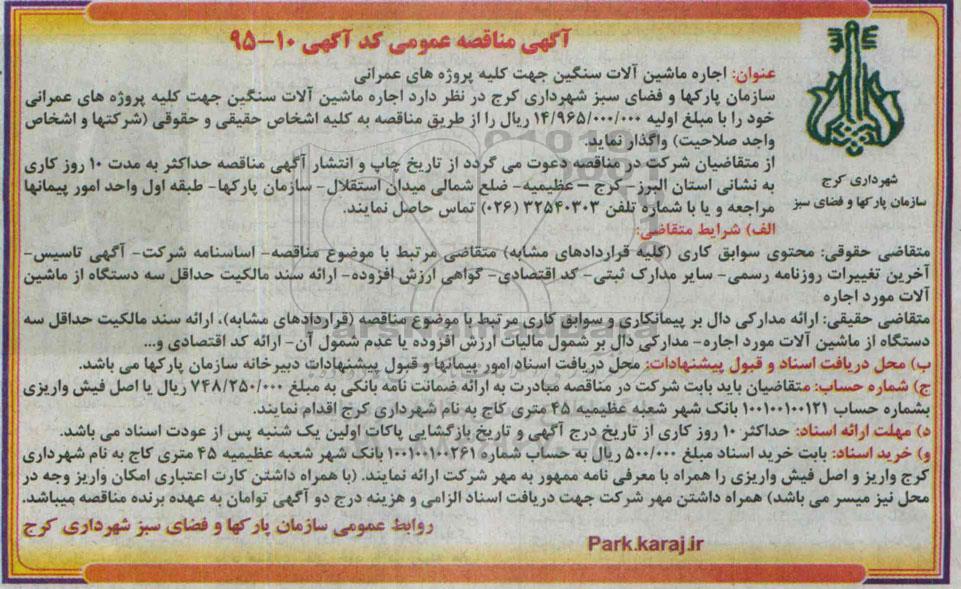 آگهی مناقصه عمومی کد آگهی ۱۰-۹۵
عنوان: اجاره ماشین آلات سنگین جهت کلیه پروژه های عمرانی
سازمان پارکها و فضای سبز شهرداری کرج در نظر دارد اجاره ماشین آلات سنگین جهت کلیه پروژه های عمرانی
خود را با مبلغ اولیه ۱۴/۹۶۵/۰۰۰/۰۰۰ ریال را از طریق مناقصه به کلیه اشخاص حقیقی و حقوقی (شرکتها و اشخاص
واجد صلاحیت) واگذار نماید.
از متقاضیان شرکت در مناقصه دعوت می گردد از تاریخ چاپ و انتشار آگهی مناقصه حداکثر به مدت ۱۰ روز کاری
به نشانی استان البرز- کرج – عظیمیه- ضلع شمالی میدان استقلال- سازمان پارکها- طبقه اول واحد امور پیمانها
مراجعه و یا با شماره تلفن ۳۲۵۴۰۳۰۳ (۰۲۶) تماس حاصل نمایند.
شهرداری کرج
سازمان پارکها و فضای سبز
الف) شرایط متقاضی:
متقاضی حقوقی: محتوی سوابق کاری (کلیه قراردادهای مشابه) متقاضی مرتبط با موضوع مناقصه- اساسنامه شرکت- آگهی تاسیس-
آخرین تغییرات روزنامه رسمی- سایر مدارک ثبتی- کد اقتصادی- گواهی ارزش افزوده- ارائه سند مالکیت حداقل سه دستگاه از ماشین
آلات مورد اجاره
متقاضی حقیقی: ارائه مدارکی دال بر پیمانکاری و سوابق کاری مرتبط با موضوع مناقصه (قراردادهای مشابه)، ارائه سند مالکیت حداقل سه
دستگاه از ماشین آلات مورد اجاره- مدارکی دال بر شمول مالیات ارزش افزوده یا عدم شمول آن- ارائه کد اقتصادی و...
ب) محل دریافت اسناد و قبول پیشنهادات: محل دریافت اسناد امور پیمانها و قبول پیشنهادات دبیرخانه سازمان پارکها می باشد.
ج) شماره حساب: متقاضیان باید بابت شرکت در مناقصه مبادرت به ارائه ضمانت نامه بانکی به مبلغ ۷۴۸/۲۵۰/۰۰۰ ریال یا اصل فیش واریزی
بشماره حساب ۱۰۰۱۰۰۱۰۰۱۲۱ بانک شهر شعبه عظیمیه ۴۵ متری کاج به نام شهرداری کرج اقدام نمایند.
د) مهلت ارائه اسناد: حداکثر ۱۰ روز کاری از تاریخ درج آگهی و تاریخ بازگشایی پاکات اولین یک شنبه پس از عودت اسناد می باشد.
و) خرید اسناد: بابت خرید اسناد مبلغ ۵۰۰/۰۰۰ ریال به حساب شماره ۱۰۰۱۰۰۱۰۰۲۶۱ بانک شهر شعبه عظیمیه ۴۵ متری کاج به نام شهرداری
کرج واریز و اصل فیش واریزی را همراه با معرفی نامه ممهور به مهر شرکت ارائه نمایند. (با همراه داشتن کارت اعتباری امکان واریز وجه در
محل نیز میسر می باشد) همراه داشتن مهر شرکت جهت دریافت اسناد الزامی و هزینه درج دو آگهی توامان به عهده برنده مناقصه میباشد.
روابط عمومی سازمان پارکها و فضای سبز شهرداری کرج
Park.karaj.ir